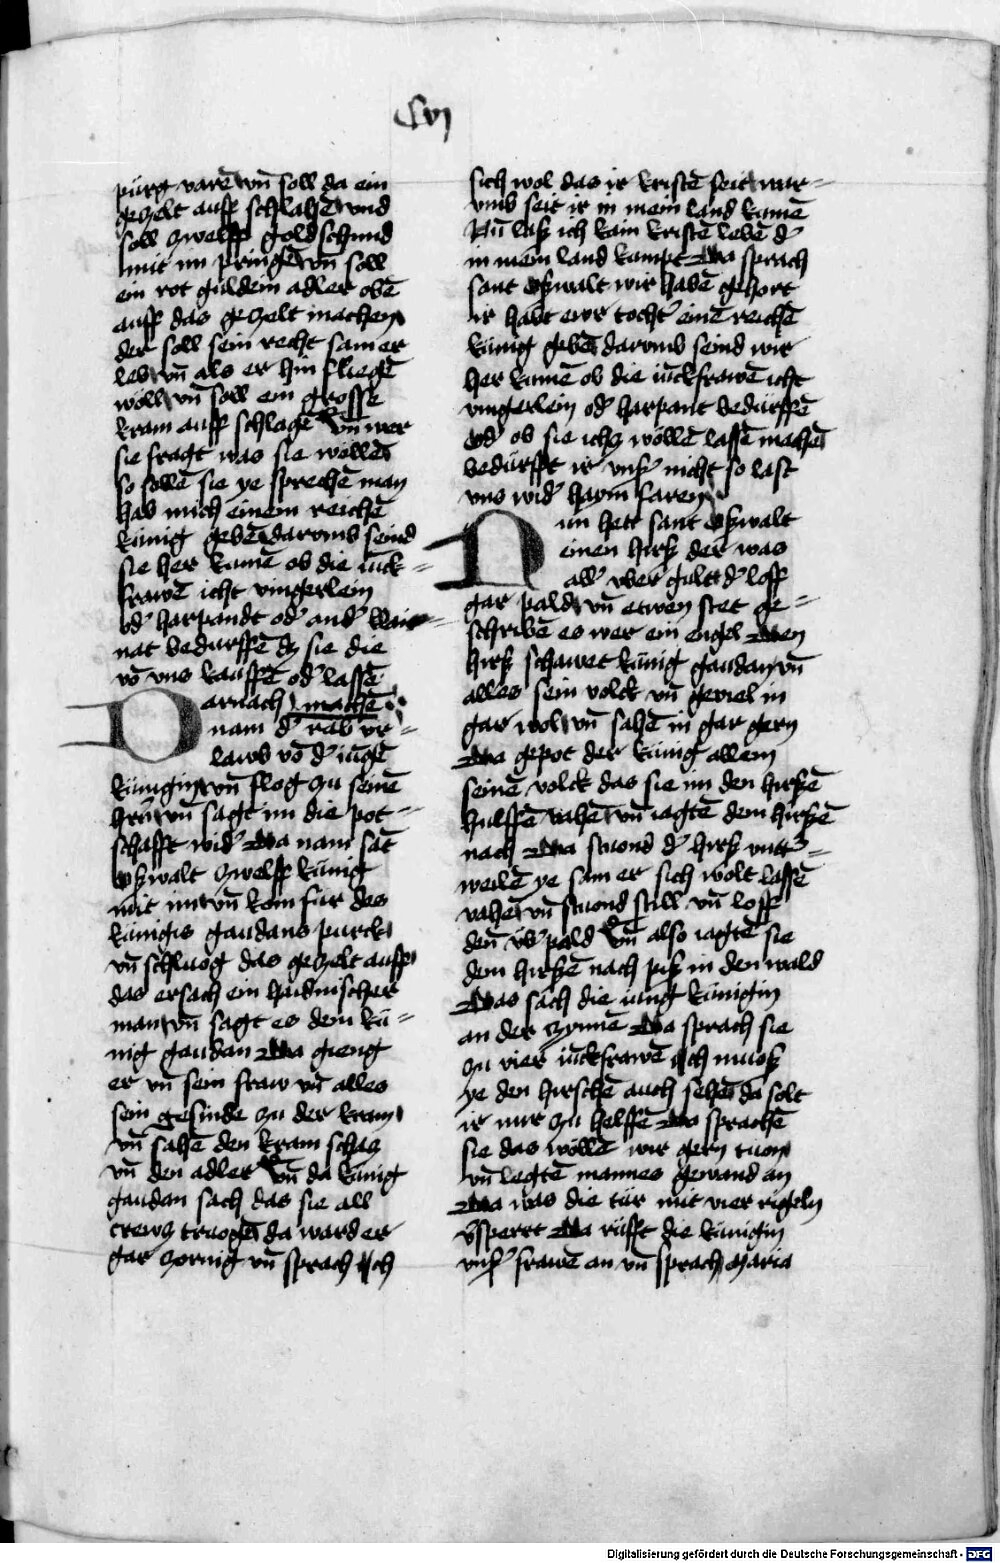 Cvj
pürg varē vn̄ soll da ein
gezelt auff schlahē vnd
soll zwelff goldschmid
mit im pringē vn̄ soll
ein rot guldein adler obē
auff das gezelt machen
der soll sein recht sam er
leb vn̄ als er hin fliegē
wöll vn̄ soll ein grosse
kram auff schlagē Vn̄ wer
sie fragt was sie wöllēd
so sollē sie ye sprechē man
hab mich einem reichē
künig gebē darvmb seind
sie her kumē ob die iūck=
frawē icht vingerlein
od' harpandt od' and'
nat bedurffē dz sie die
vō vns kauffē od' lassē
machē
Darnach
nam d' rab vr=
laub vō d' iūgē
künigin vn̄ flog zu seinē
hr̄n vn̄ sagt im die pot=
schafft wid' Da nam sāt
oßwalt zwelff künig
mit im vn̄ kom für des
künigis gaudans purck
vn̄ schluog das gezelt auff
das ersach ein haidnischer
man vn̄ sagt es dem kü=
nig gaudan Da gieng
er vn̄ sein fraw vn̄ alles
sein gesinde zu der kram
vn̄ sahē den kram schatz
vn̄ den adler Vn̄ da künig
gaudan sach das sie all
crewz truogē da ward er
gar zornig vn̄ sprach Ich
sich wol das ir kristē seit war=
vmb seit ir in mein land kumē
Nu laß ich kain kristē lebē d'
in mein land kumpt Da sprach
sant Oßwalt wir habē gehort
ir habt ewr tocht' einē reichē
künig gebē darvmb seind wir
her kumē ob die iūckfrawē icht
vingerlein od' harpant bedürffē
Od' ob sie ichz wöllē lassē machē
bedürfft ir vnß' nicht so last
vns wid' haym faren
Nun hett sant Oßwalt
einen hirß der was
all' vber guldt d' loff
gar pald vn̄ etwen stet ge=
schribē es wer ein engel Den
hirß schawet künig gaudan vn̄
alles sein volck vn̄ geviel in
gar wol vn̄ sahē in gar gern
Da gepot der künig allem
seinē volck das sie im den hirßē
hulffē vahē vn̄ iagtē dem hirßē
nach Da stuond d' hirß vntt'=
weilē ye sam er sich wolt lassē
vahē vn̄ stuond still vn̄ loff
den̄ vb' pald Vn̄ also iagtē sie
dem hirßē nach piß in den wald
Das sach die iung künigin
an der zynnē Da sprach sie
zu vier iūckfrawē Ich muoß
ye den hirschē auch sehē da solt
ir mir zu helffē Da sprachē
sie das wöllē wir gern tuon
vn̄ legtē mannes gewand an
Da was die tür mit vier rigeln
v'sperrt Da rüfft die künigin
vnß' frawē an vn̄ sprach Maria
Digitalisierung gefördert durch die Deutsche Forschungsgemeinschaft - DFG